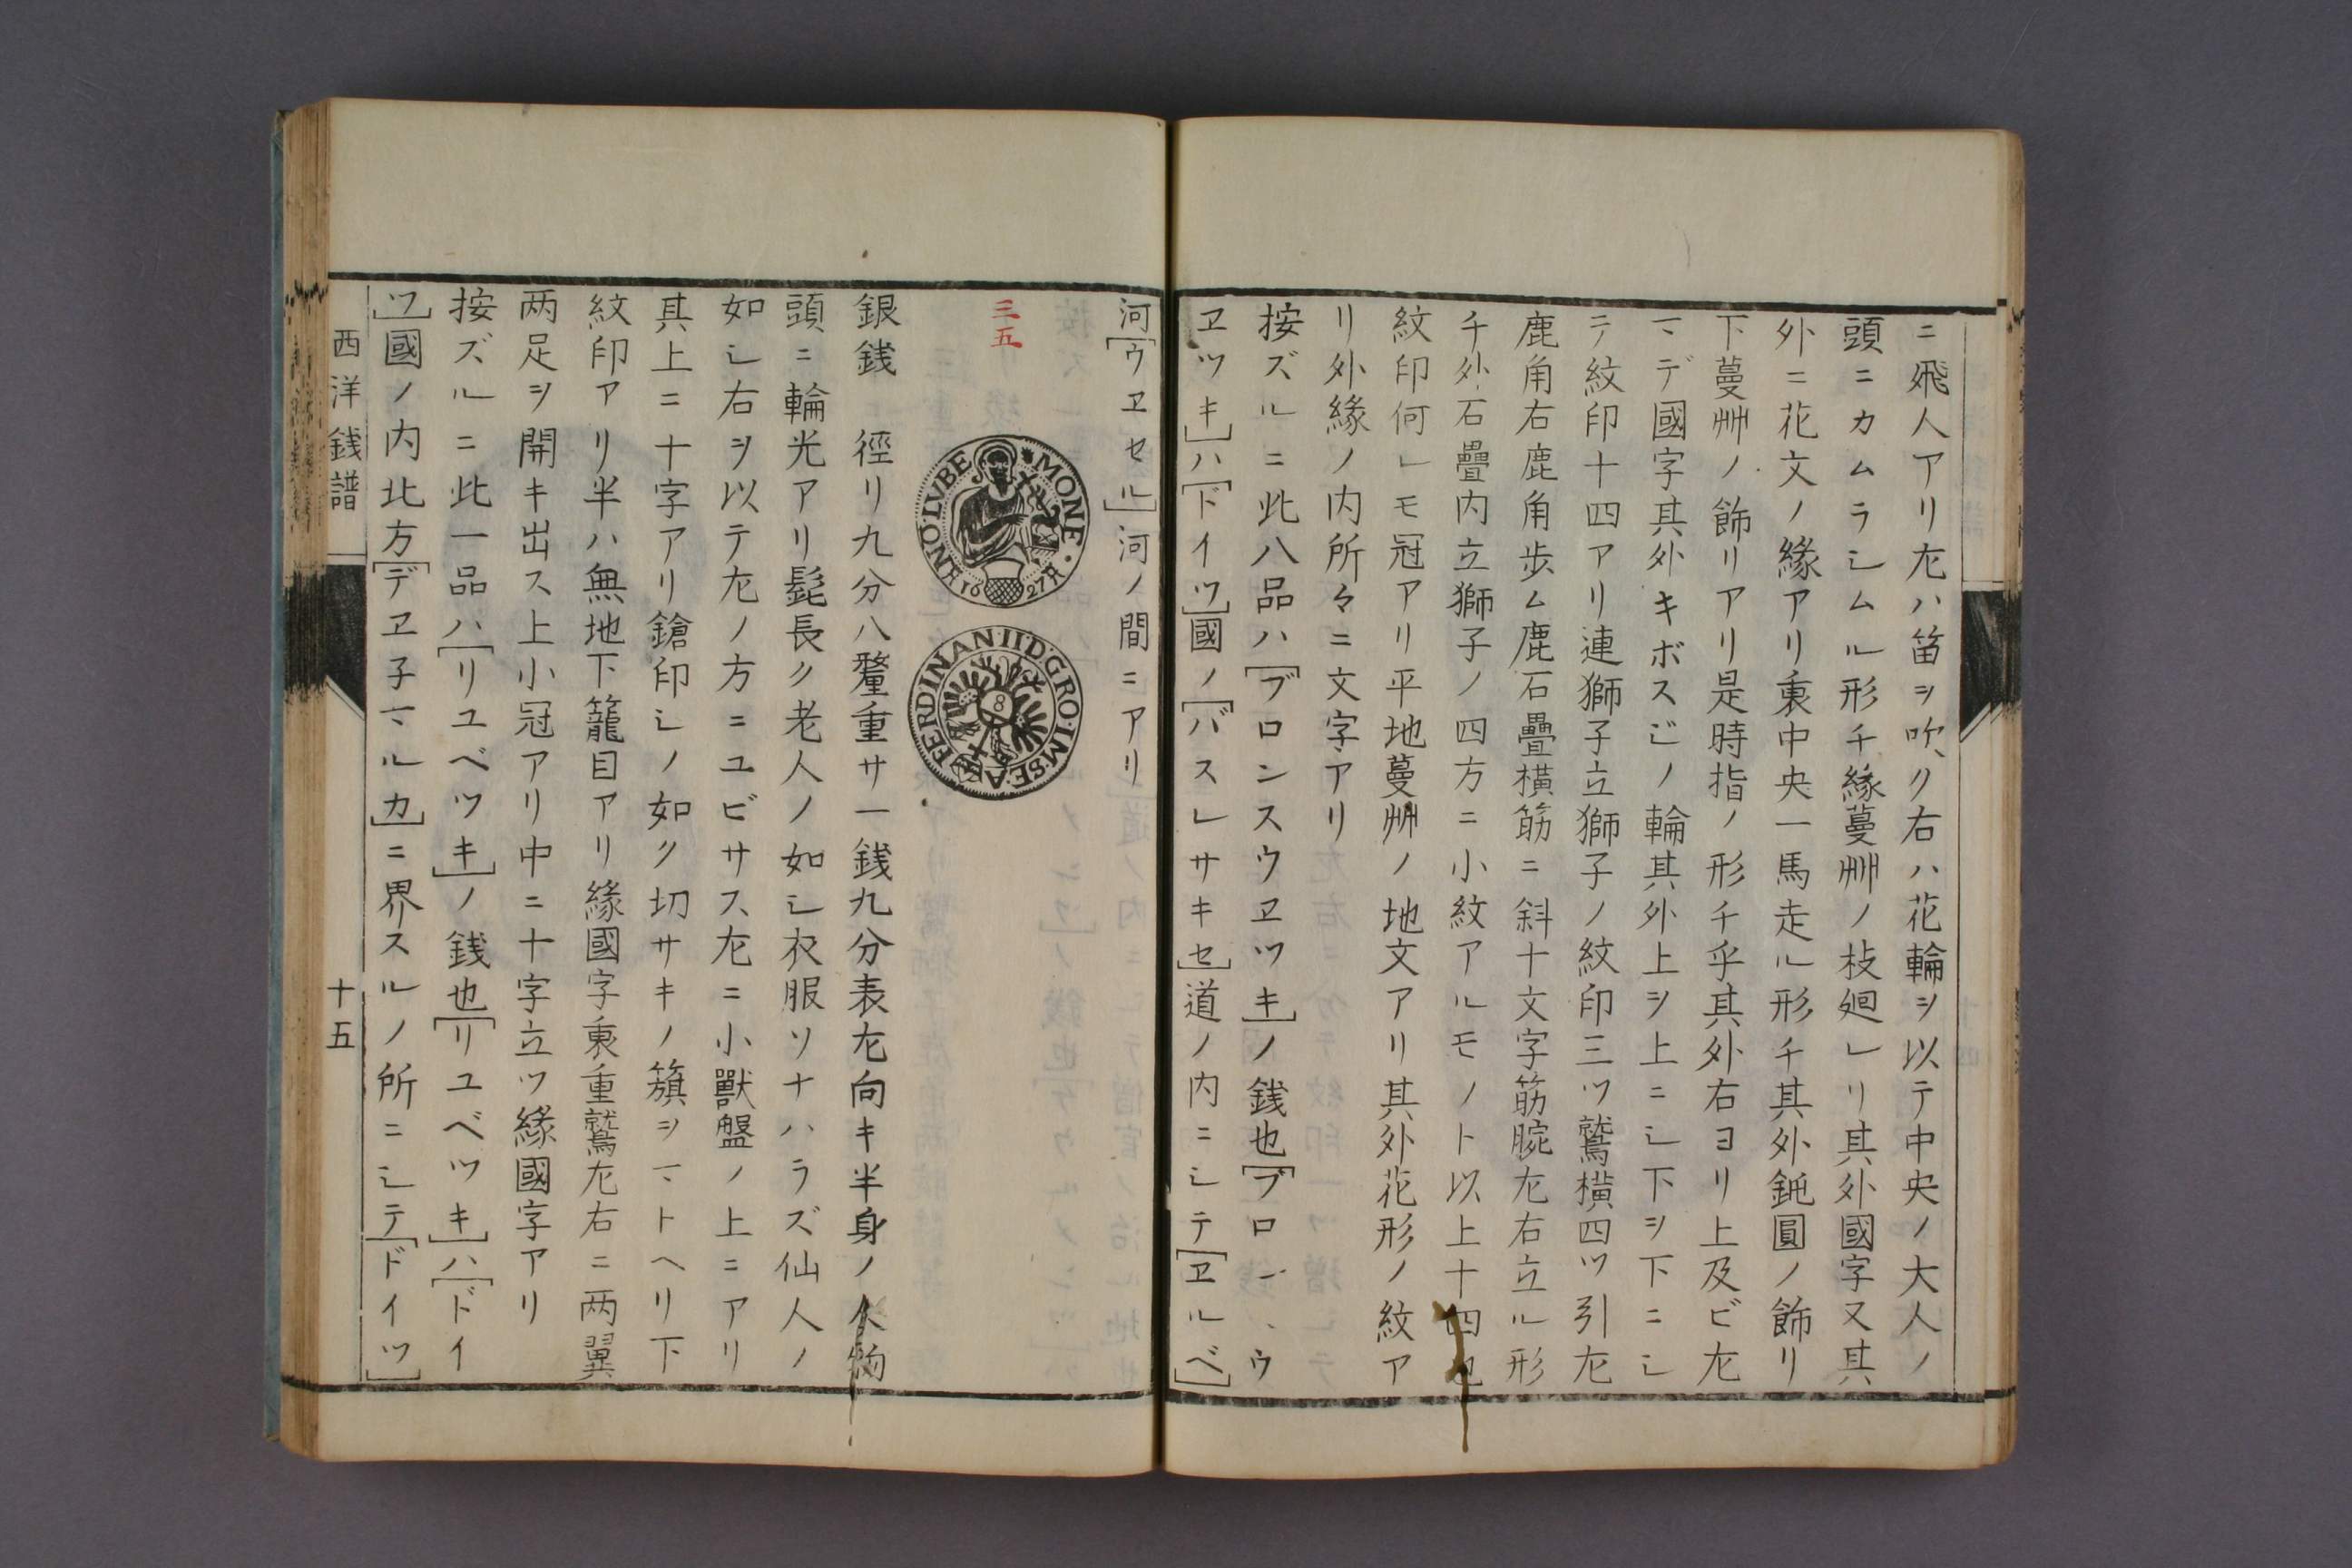 ニ飛人アリ左ハ笛ヲ吹ク右ハ花輪ヲ以テ中央ノ大人ノ
頭ニカムラシムル形チ縁蔓艸ノ枝廻レリ其外國字又其
外ニ花文ノ縁アリ裏中央一馬走ル形チ其外鈍圓ノ飾リ
下蔓艸ノ飾リアリ是時指ノ形チ乎其外右ヨリ上及ビ左
マデ國字其外キボスジノ輪其外上ヲ上ニシ下ヲ下ニシ
テ紋印十四アリ連獅子立獅子ノ紋印三ツ鷲横四ツ引左
鹿角右鹿角歩ム鹿石疊横筋ニ斜十文字筋腕左右立ル形
チ外石疊内立獅子ノ四方ニ小紋アルモノト以上十四也
紋印何レモ冠アリ平地蔓艸ノ地文アリ其外花形ノ紋ア
リ外縁ノ内所々ニ文字アリ
按ズルニ此八品ハ[ブロンスウヱツキ]ノ銭也[ブロンスウ
ヱツキ]ハ[ドイツ]國ノ[バスレサキセ]道ノ内ニシテ[ヱルベ]
河[ウヱセル]河ノ間ニアリ
三五
MONE·NO·LVBE 1627
FERDINAN·II·D·G·RO·IM·SE·A
8
銀銭 徑リ九分八釐重サ一銭九分表左向キ半身ノ人物
頭ニ輪光アリ髭長ク老人ノ如シ衣服ソナハラズ仙人ノ
如シ右ヲ以テ左ノ方ニユビサス左ニ小獸盤ノ上ニアリ
其上ニ十字アリ鎗印シノ如ク切サキノ籏ヲマトヘリ下
紋印アリ半ハ無地下籠目アリ縁國字裏重鷲左右ニ両翼
両足ヲ開キ出ス上小冠アリ中ニ十字立ツ縁國字アリ
按ズルニ此一品ハ[リユベツキ]ノ銭也[リユベツキ]ハ[ドイ
ツ]國ノ内北方[デヱ子マルカ]ニ界スルノ所ニシテ[ドイツ]
西洋銭譜 十五